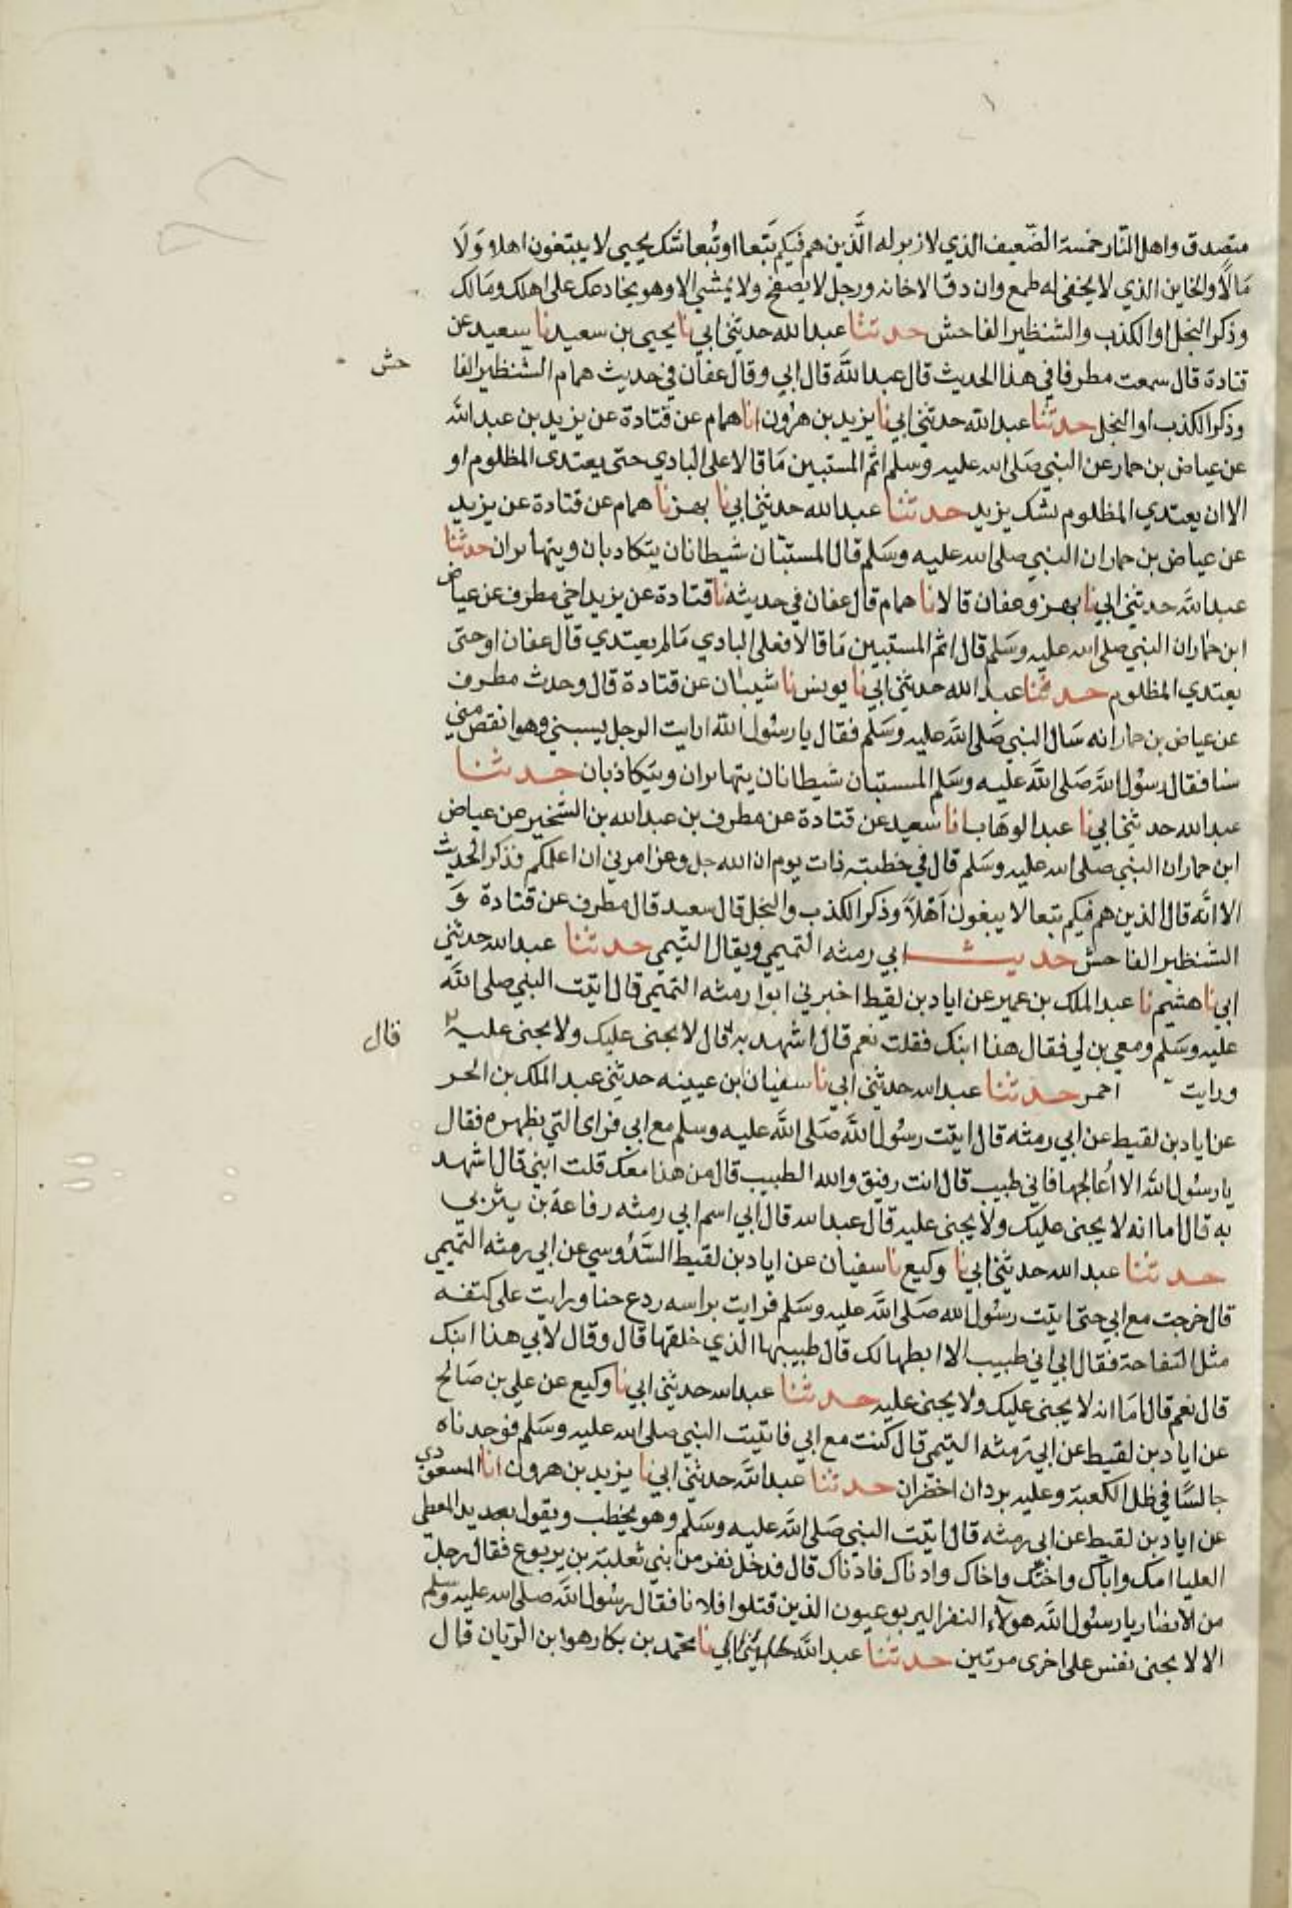 متصدق واهل النار خمسة الضعيف الذي لا زبر له الَّذين هم فيكم تَبَعا او تُبعا شك يحيى لا يبتغون اهلا وَلَا
مَالًا والخاين الذي لا يخفى له طمع وان دق الا خانه ورجل لا يصبح ولا يمشي الا وهو يخادعك على اهلك ومَالك
وذكر البخل او الكذب والشنظير الفاحش حدثنا عبد الله حدثني ابي نا يحيى بن سعيد نا سعيد عن
قتادة قال سمعت مطرفا في هذا الحديث قال عبد الله قال ابي وقال عفان في حديث همام الشنظير الفا
حش
وذكر الكذب او البخل حدثنا عبد الله حدثني ابي نا يزيد بن هرون انا همام عن قتادة عن يزيد بن عبد الله
عن عياض بن حمار عن النبي صَلى الله عليه وسلم اثم المستبين مَا قالا على البادي حتى يعتدى المظلوم او
الا ان يعتدي المظلوم شك يزيد حدثنا عبد الله حدثني ابي نا بهز نا همام عن قتادة عن يزيد
عن عياض بن حمار ان النبي صلى الله عليه وسَلم قال المستبّان شيطانان يتكاذبان ويتهاتران حدثنا
عبد الله حدثني ابي نا بهز وعفان قالا نا همام قال عفان في حديثه نا قتادة عن يزيد اخي مطرف عن عياض
ابن حمار ان النبي صلى الله عليه وسَلم قال اثم المستبين مَا قالا فعلى البادي مَا لم يعتدي قال عفان او حتى
يعتدي المظلوم حدثنا عبد الله حدثني ابي نا يونس نا شيبان عن قتادة قال وحدث مطرف
عن عياض بن حمار انه سَال النبي صَلى الله عليه وسَلم فقال يا رسُول الله ارايت الرجل يسبني وهو انقص مني
سنا فقال رسُول الله صَلى الله عليه وسَلم المستبان شيطانان يتهاتران ويتكاذبان حدثنا
عبد الله حدثني ابي نا عبد الوهَاب انا سعيد عن قتادة عن مطرف بن عبد الله بن الشخير عن عياض
ابن حمار ان النبي صلى الله عليه وسَلم قال في خطبته ذات يوم ان الله جل وعز امرني ان اعلمكم فذكر الحديث
الا انّه قال الذين هم فيكم تبعا لا يبغون اَهْلاً وذكر الكذب والبخل قال سعيد قال مطرف عن قتادة وَ
الشنظير الفاحش حديث ابي رمثه التميمي ويقال التّيمى حدثنا عبد الله حدثني
ابي نا هشيم نا عبد الملك بن عمير عن اياد بن لقيط اخبرني ابوا رمثه التميمي قال اتيت النبي صلى الله
عليه وسَلم ومعي بن لي فقال هذا ابنك فقلت نعم قال اشهد به قال لا يجنى عليك ولا يجنى عليه
قال
ورايت احمر حدثنا عبد الله حدثني ابي نا سفيان ابن عيينه حدثني عبد الملك بن الحر
عن اياد بن لقيط عن ابي رمثه قال اتيت رسُول الله صَلى الله عليه وسلم مع ابي فراى التي بظهره فقال
يا رسُول الله الا اُعالجها فاني طبيب قال انت رفيق والله الطبيب قال من هذا معَك قلت ابني قال اشهد
به قال اما انه لا يجنى عليك ولا يجنى عليه قال عبد الله قال ابي اسم ابي رمثه رفاعة بن يثربى
حدثنا عبد الله حدثني ابي نا وكيع نا سفيان عن اياد بن لقيط السَّدُوسي عن ابي رمثه التميمي
قال خرجت مع ابي حتى اتيت رسُول الله صَلى الله عليه وسَلم فرايت براسه ردع حنا ورايت على كتفه
مثل التفاحة فقال ابي اني طبيب الا ابطها لك قال طبيبها الذي خلقها قال وقال لابي هذا ابنك
قال نعم قال امَا انه لا يجنى عليك ولا يجنى عليه حدثنا عبد الله حدثني ابي نا وكيع عن علي بن صَالح
عن اياد بن لقيط عن ابي رمثه التيمي قال كنت مع ابي فاتيت النبي صلى الله عليه وسَلم فوجدناه
جالسًا في ظل الكعبة وعليه بردان اخضران حدثنا عبد الله حدثني ابي نا يزيد بن هرون انا المسعودي
عن اياد بن لقيط عن ابي رمثه قال اتيت النبي صَلى الله عليه وسَلم وهو يخطب ويقول يد المعطى
العليا امك واباك واختك واخاك وادناك فادناك قال فدخل نفر من بني ثعلبة بن يربوع فقال رجل
من الانصار يا رسُول الله هولآء النفر اليربوعيون الذين قتلوا فلانا فقال رسُول الله صلى الله عليه وسلم
الا لا يجنى نفس على اخرى مرتين حدثنا عبد الله حدثني ابي نا محمد بن بكار هو ابن الريان قال